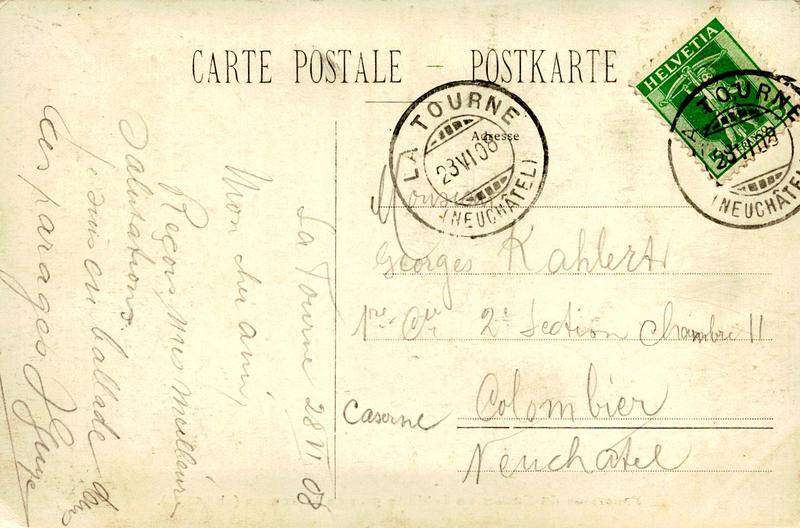 CARTE POSTALE — POSTKARTE
HELVETIA
LA TOURNE
23 VI 08
(NEUCHÂTEL)
TOURNE
23 VI 08
(NEUCHÂTEL)
Adresse
Monsieur
Georges Kahlert
1re Cie 2e Section Chambre 11
Caserne Colombier
Neuchatel
La Tourne 28 VI 08
Mon cher ami,
Reçois mes meilleures
salutations.
Je suis en ballade dans
ces parages